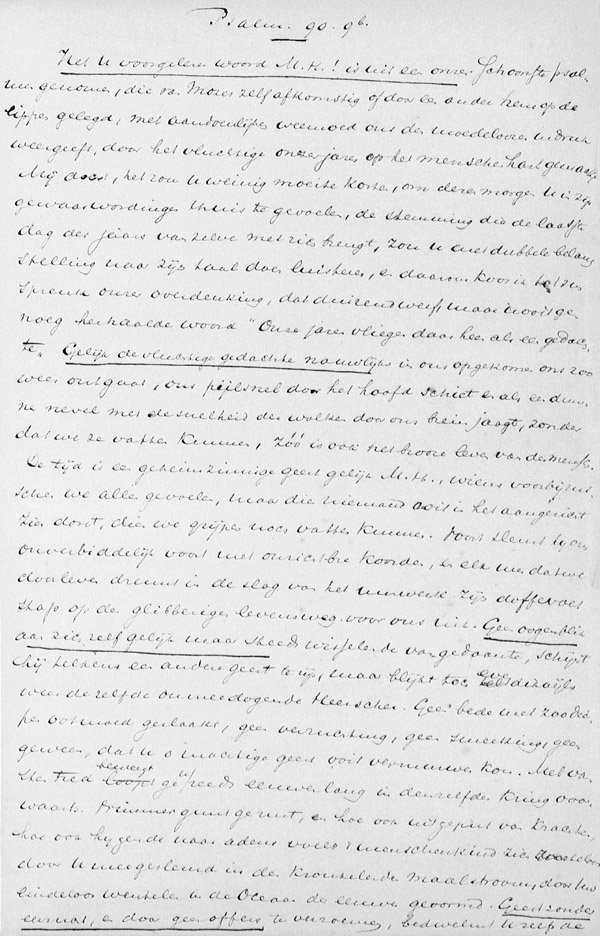 Psalm. 90. 9b.
Het u voorgelezen woord M.H.! is uit een onzer schoonste psal-
men genomen, die van Mozes zelf afkomstig of door een ander hem op de
lippen gelegd, met aandoenlijke weemoed ons den moedeloozen indruk
weergeeft, door het vluchtige onzer jaren op het menschenhart gemaakt.
Mij dacht, het zou u weinig moeite kosten, om dezen morgen u in zijn
gewaarwordingen thuis te gevoelen, de stemming die de laatste
dag des jaars van zelve met zich brengt, zou u met dubbele belang
stelling naar zijn taal doen luisteren, en daarom koos ik tot
spreuk onzer overdenking, dat duizend werf, maar nooit ge
noeg herhaalde woord "Onze jaren vliegen daar heen als een gedach-
te." Gelijk de vluchtige gedachte nauwlijks in ons opgekomen ons zoo
weer ontgaat, ons pijlsnel door het hoofd schiet en als een dun-
ne nevel met de snelheid der wolken door ons brein jaagt, zonder
dat we ze vatten kunnen, zóó is ook het brooze leven van de mensch.
De tijd is een geheimzinnige geest gelijk M.H., wiens voorbijrui-
schen we alle gevoelen, maar die niemand ooit in het aangezicht
zien dorst, die we grijpen noch vatten kunnen. Voort sleurt hij ons
onverbiddelijk voort met onzichtbre koorden, en elk uur dat we
doorleven dreunt in de slag van het uurwerk zijn doffe voet
stap op den glibberigen levensweg voor ons uit. Geen oogenblik
aan zich zelf gelijk maar steeds wisselende van gedaante, schijnt
hij telkens een ander geest te zijn, maar blijkt toch
weer dezelfde onmeedogende Heerscher. Geen bede met zoo die-
pen ootmoed geslaakt, geen verzuchting, geen smeeking, geen
geween, dat u o machtige geest ooit vermurwen kon. Met van
sten tred beweegt g' u reeds eeuwen lang in denzelfden kring voor
waarts. Nimmer gunt ge rust, en hoe ook uitgeput van krachten,
hoe ook hijgende naar adem voelt 't menschenkind zich
door u meegesleurd in den kronkelende maalstroom, door uw
eindeloos wentelen in de Oceaan der eeuwen gevormd. Geest zonder
en door geen offers te verzoenen, bedwelmt u zelf de